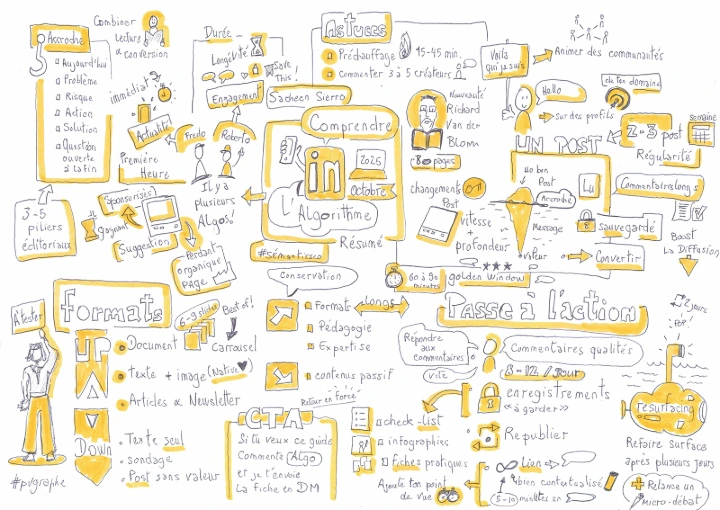 Accroche
Aujourd'hui
Problème
Risque
Action
Solution
Question
ouverte
à la fin
3-5
piliers
éditoriaux
Combiner
lecture
conversion
immédiat
Actualité
Première
Heure
Durée
Longévité
Save
this!
Engagement
Fredo
Roberto
Il y a
plusieurs
Algos!
Sponsorisés
gagnant
Suggestion
Perdant
organique
PAGE
Astuces
Préchauffage
15-45 min.
Commenter 3 à 5 créateurs
Sadeen Sierro
Comprendre
in
2025
Octobre
L'Algorithme
Résumé
#sémanticeco
Nouveauté
Rickard
Van der
Blomm
80 pages
changements
Post
vitesse
+
profondeur
60 à 90
minutes
golden window
Voilà
qui je suis
Animer des communautés
Hello
de ton domaine
sur des profils
UN POST
Un bon
Post
Accroche
Message
valeur
Lu
sauvegardé
Convertir
2-3 post
semaine
Régularité
Commentaires longs
Boost
La Diffusion
formats
A tester
UP
Document
6-9 slides
Best of!
Carrousel
texte + image (Native)
Articles & Newsletter
DOWN
Texte seul
sondage
Post sans valeur
#pvgraphe
Conservation
Formats
Longs
Pédagogie
Expertise
contenus passif
Retour en force
CTA
Si tu veux ce guide
Commente Algo
et je t'envoie
La fiche en DM
check-list
infographies
fiches pratiques
Ajoute ton point
de vue
Passe à l'action
Répondre
aux
commentaires
vite
Commentaires qualités
8-12 / Jour
enregistrements
« à garder »
Republier
Lien
bien contextualisé
5-10 minutes en
2 jours
POP!
resurfacing
Refaire surface
après plusieurs jours
Relance un
micro-débat